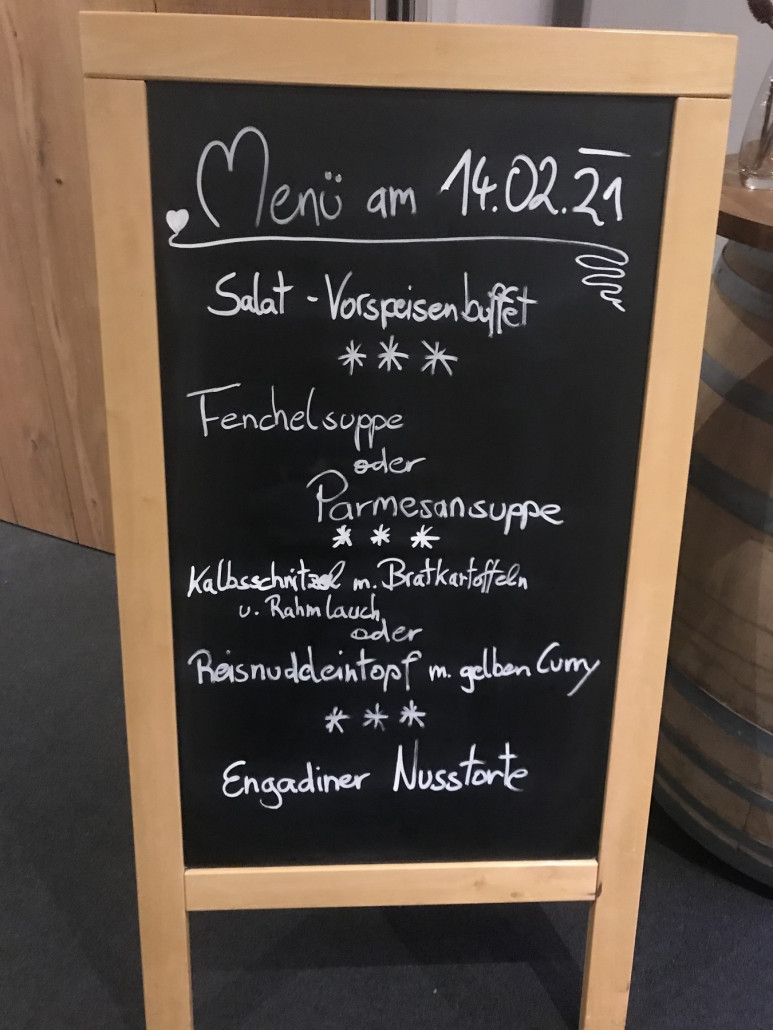 Menü am 14.02.21
Salat - Vorspeisenbuffet
***
Fenchelsuppe
oder
Parmesansuppe
***
Kalbsschnitzel m. Bratkartoffeln
u. Rahmlauch
oder
Reisnudeleintopf m. gelben Curry
***
Engadiner Nusstorte